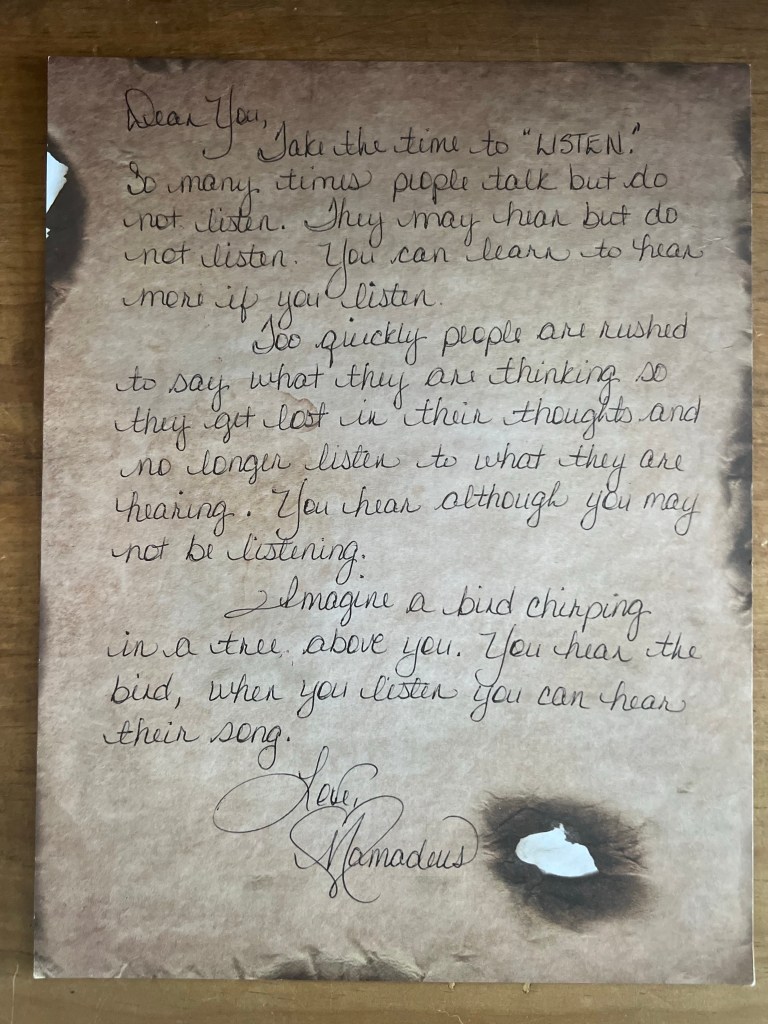 Dear You,
Take the time to "LISTEN."
So many times people talk but do
not listen. They may hear but do
not listen. You can learn to hear
more if you listen.
Too quickly people are rushed
to say what they are thinking so
they get lost in their thoughts and
no longer listen to what they are
hearing. You hear although you may
not be listening.
Imagine a bird chirping
in a tree above you. You hear the
bird, when you listen you can hear
their song.
Love,
Mamadeus